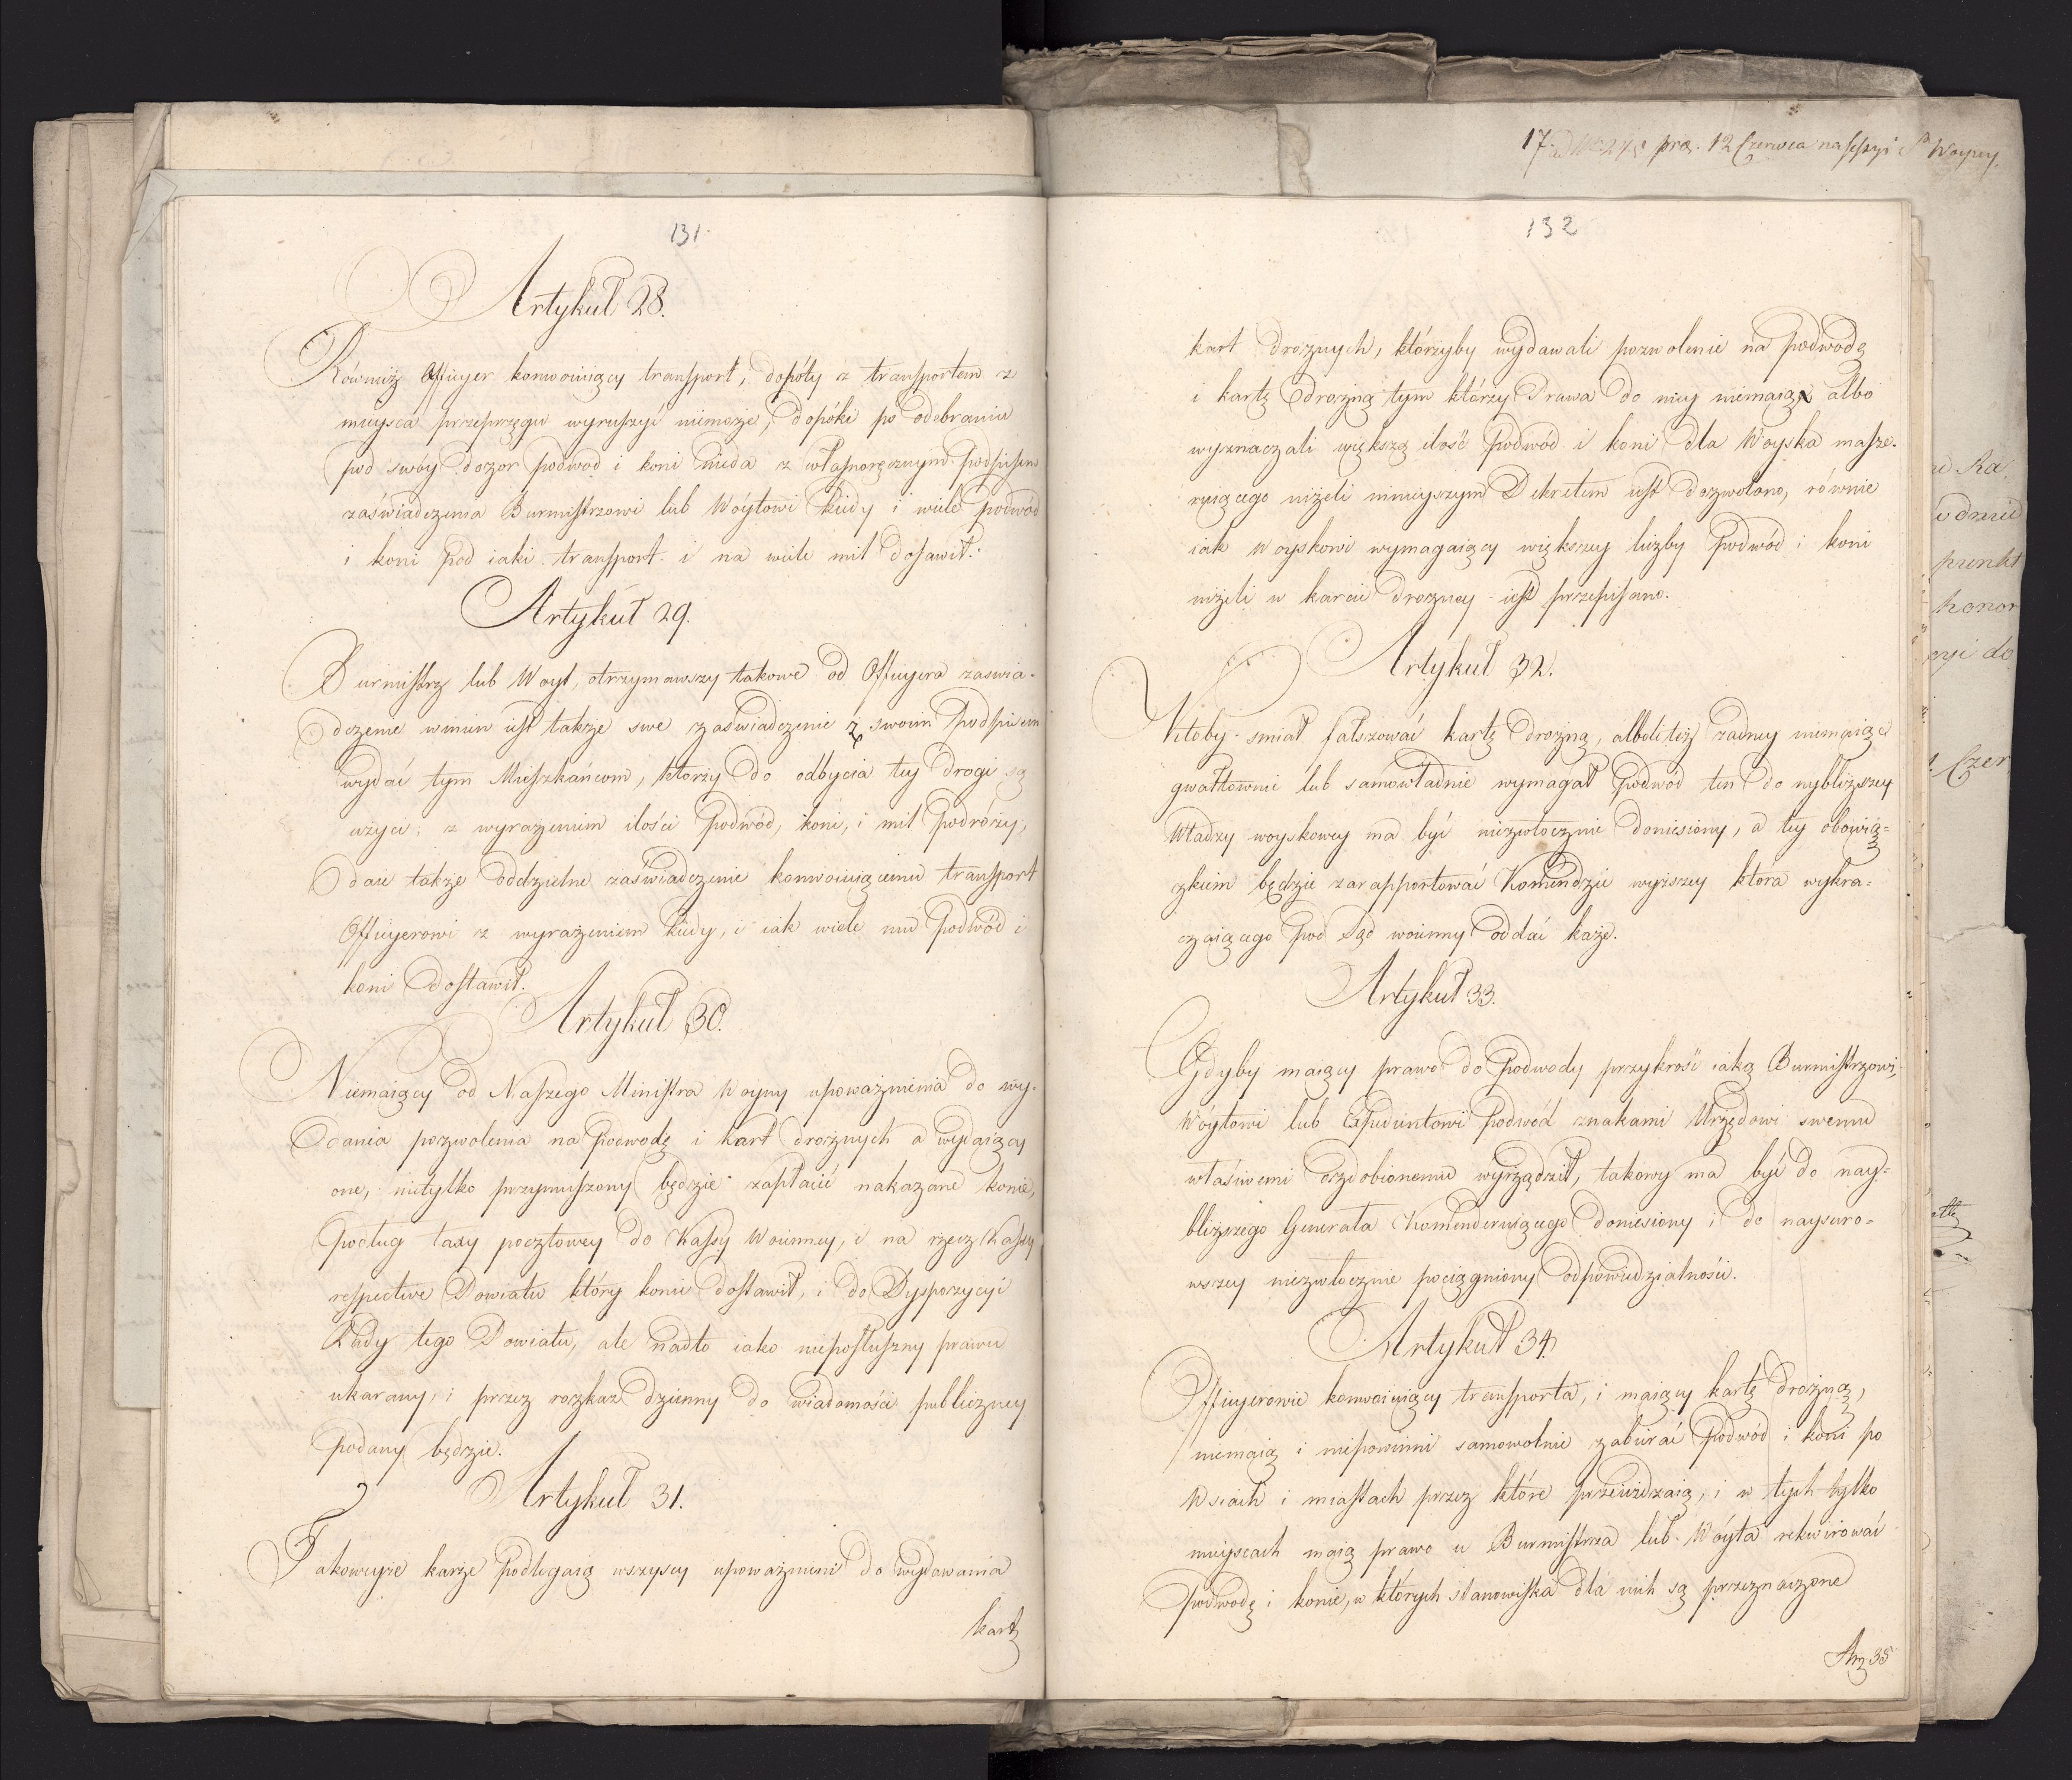 131.
Artykuł 28.
Równiéż Officyer konwoiuiący transport, dopóty z transportem z
mieysca przeprzęgu wyruszyć niemoże, dopóki po odebraniu
pod swóy dozor podwod i koni nieda z własnoręcznym podpisem
zaświadczenia Burmistrzowi lub Wóytowi kiedy i wiele podwód
i koni pod iaki transport i na wiele mil dostawił.
Artykuł 29.
Burmistrz lub Woyt, otrzymawszy takowe od Officyera zaswia-
dczenie winien iest także swe zaświadczenie z swoim Podpisem
wydać tym Mieszkańcom, ktorzy do odbycia tey drogi są
użyci; z wyrażeniem ilości Podwód, koni, i mil Podróży,
daie także oddzielne zaświadczenie konwoiuiącemu transport
Officyerowi z wyrażeniem kiedy, i iak wiele mu Podwód i
koni dostawił.
Artykuł 30.
Niemaiący od Naszego Ministra Woyny upoważnienia do wy-
dania pozwolenia na Podwodę i kart drożnych a wydaiący
one, nietylko przymuszony będzie zapłacić nakazane konie,
podług taxy pocztowey do Kassy Woienney, i na rzecz Kassy
respective Powiatu który konie dostawił, i do Dyspozycyi
Rady tego Powiatu, ale nadto iako nieposłuszny prawu
ukarany, i przez rozkaz dzienny do wiadomości publiczney
podany będzie.
Artykuł 31.
Takoweyże karze podlegaią wszyscy upoważnieni do wydawania
kart
17 prez. 12 Czerwca na sessyi Woyny.
132
kart drożnych, którzyby wydawali pozwolenie na podwodę
i kartę drożną tym którzy Prawa do niey niemaią albo
wyznaczali większą ilość Podwód i koni dla Woyska masze-
ruiącego niżeli ninieyszym Dekretem iest dozwolono, równie
iak Woyskowi wymagaiący większey liczby Podwód i koni
niżeli w karcie drozney iest przepisano.
Artykuł 32.
Ktoby smiał fałszować kartę drożną, alboliteż żadney niemaiąc
gwałtownie lub samowładnie wymagał Podwód ten do naybliższey
Władzy woyskowey ma być niezwłocznie doniesiony, a tey obowią-
zkiem będzie zarapportować Komendzie wyższey ktora wykra-
czaiącego pod Sąd woienny oddać każe.
Artykuł 33.
Gdyby maiący prawo do Podwody przykrość iaką Burmistrzowi,
Wóytowi lub Expedientowi Podwód znakami Urzędowi swemu
właściwemi ozdobionemu wyrządził, takowy ma być do nay-
bliższego Generała Komenderuiącego doniesiony i do naysuro-
wszey niezwłocznie pociągniony odpowiedzialności.
Artykuł 34.
Officyerowie konwoiuiący transporta, i maiący kartę drożną,
niemaią i niepowinni samowolnie zabierać Podwód i koni po
Wsiach i miastach przez które przeieżdzaią, i w tych tylko
mieyscach maią prawo u Burmistrza lub Wóyta rekwirować
podwodę i konie, w których stanowiska dla nich są przeznaczone
Art 35
punkt
honor
Czer